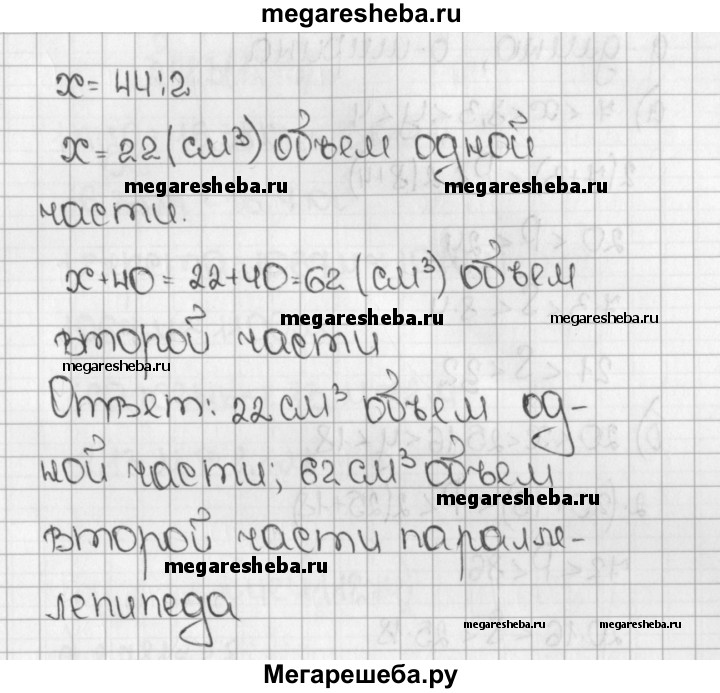 megaresheba.ru
x = 44:2
x = 22 (см³) объем одной
megaresheba.ru megaresheba.ru
части.
x+40 = 22+40=62 (см³) объем
megaresheba.ru megaresheba.ru
второй части
megaresheba.ru
Ответ: 22 см³ объем од-
ной части; 62 см³ объем
megaresheba.ru
второй части паралле-
megaresheba.ru
лепипеда
megaresheba.ru megaresheba.ru
Мегарешеба.ру